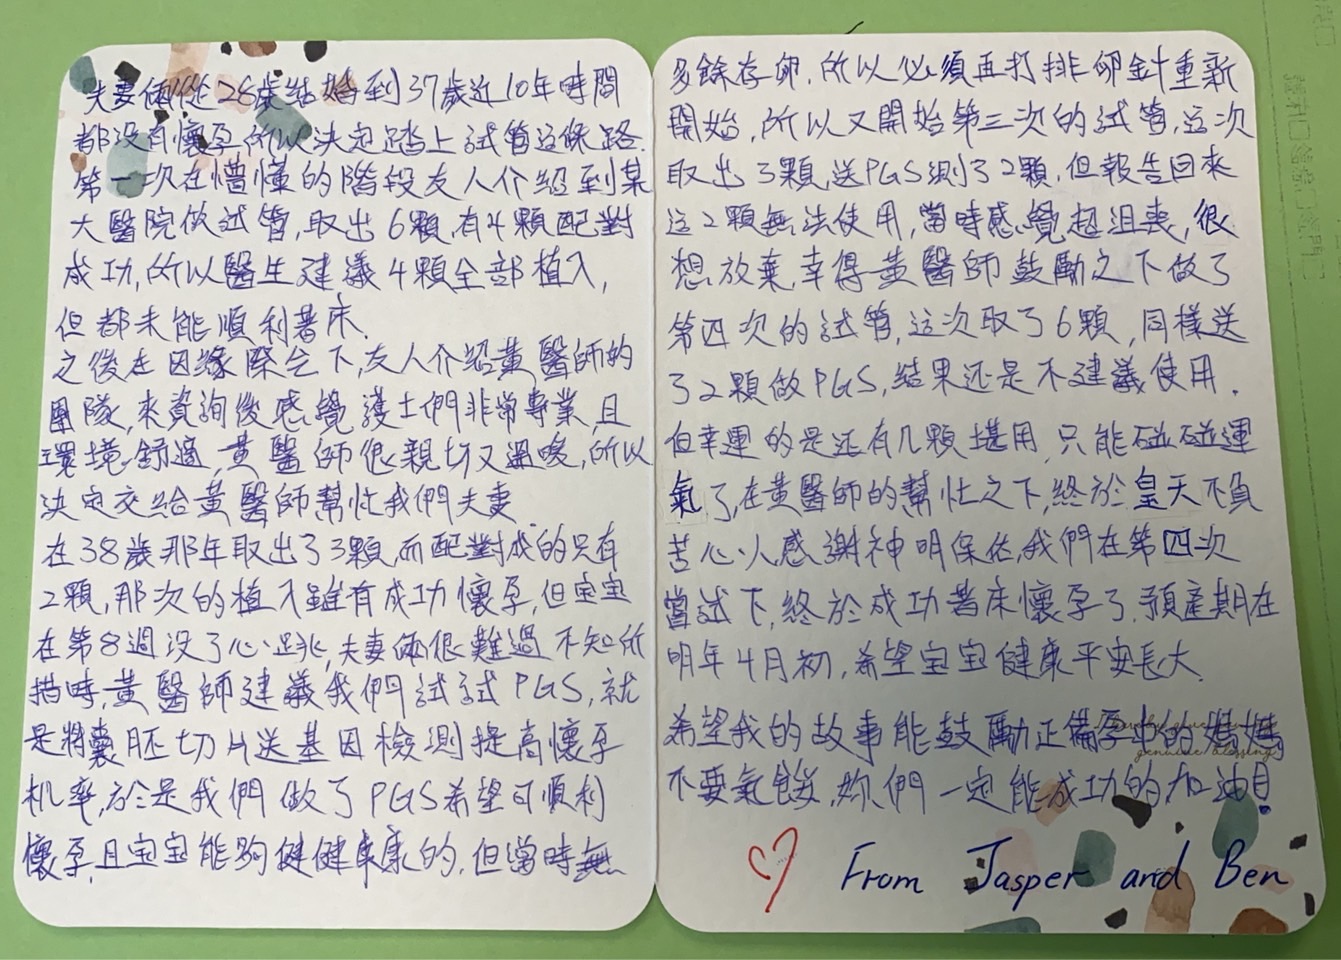 夫妻倆從28歲結婚到37歲近10年時間
都沒有懷孕所以決定踏上試管這條路.
第一次在懵懂的階段友人介紹到某
大醫院做試管,取出6顆,有4顆配對
成功,所以醫生建議4顆全部植入,
但都未能順利著床.
之後在因緣際会下,友人介紹黃醫師的
團隊,來資詢後感覺護士們非常專業,且
環境舒適,黃醫師很親切又溫暖,所以
決定交給黃醫師幫忙我們夫妻
在38歲那年取出了3顆,而配對成的只有
2顆,那次的植入雖有成功懷孕,但宝宝
在第8週没了心跳,夫妻倆很難過不知所
措時,黃醫師建議我們試試PGS,就
是將囊胚切片送基因檢測提高懷孕
机率,於是我們做了PGS希望可順利
懷孕,且宝宝能夠健健康康的,但當時無
多餘存卵,所以必須再打排卵針重新
開始,所以又開始第三次的試管,這次
取出3顆,送PGS測了2顆,但報告回來
這2顆無法使用,當時感覺超沮喪,很
想放棄,幸得黃醫師鼓勵之下做了
第四次的試管,這次取了6顆,同樣送
了2顆做PGS,結果还是不建議使用.
但幸運的是还有几顆堪用,只能碰碰運
氣了,在黃醫師的幫忙之下,終於皇天不負
苦心人感謝神明保佑,我們在第四次
嘗試下,終於成功著床懷孕了,預產期在
明年4月初,希望宝宝健康平安長大.
希望我的故事能鼓勵正備孕中的媽媽
不要氣餒,妳們一定能成功的,加油!
From Jasper and Ben